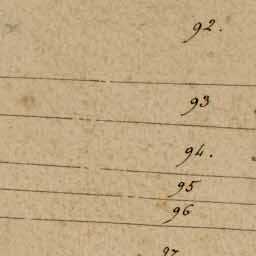 92.
93
94.
95
96
97